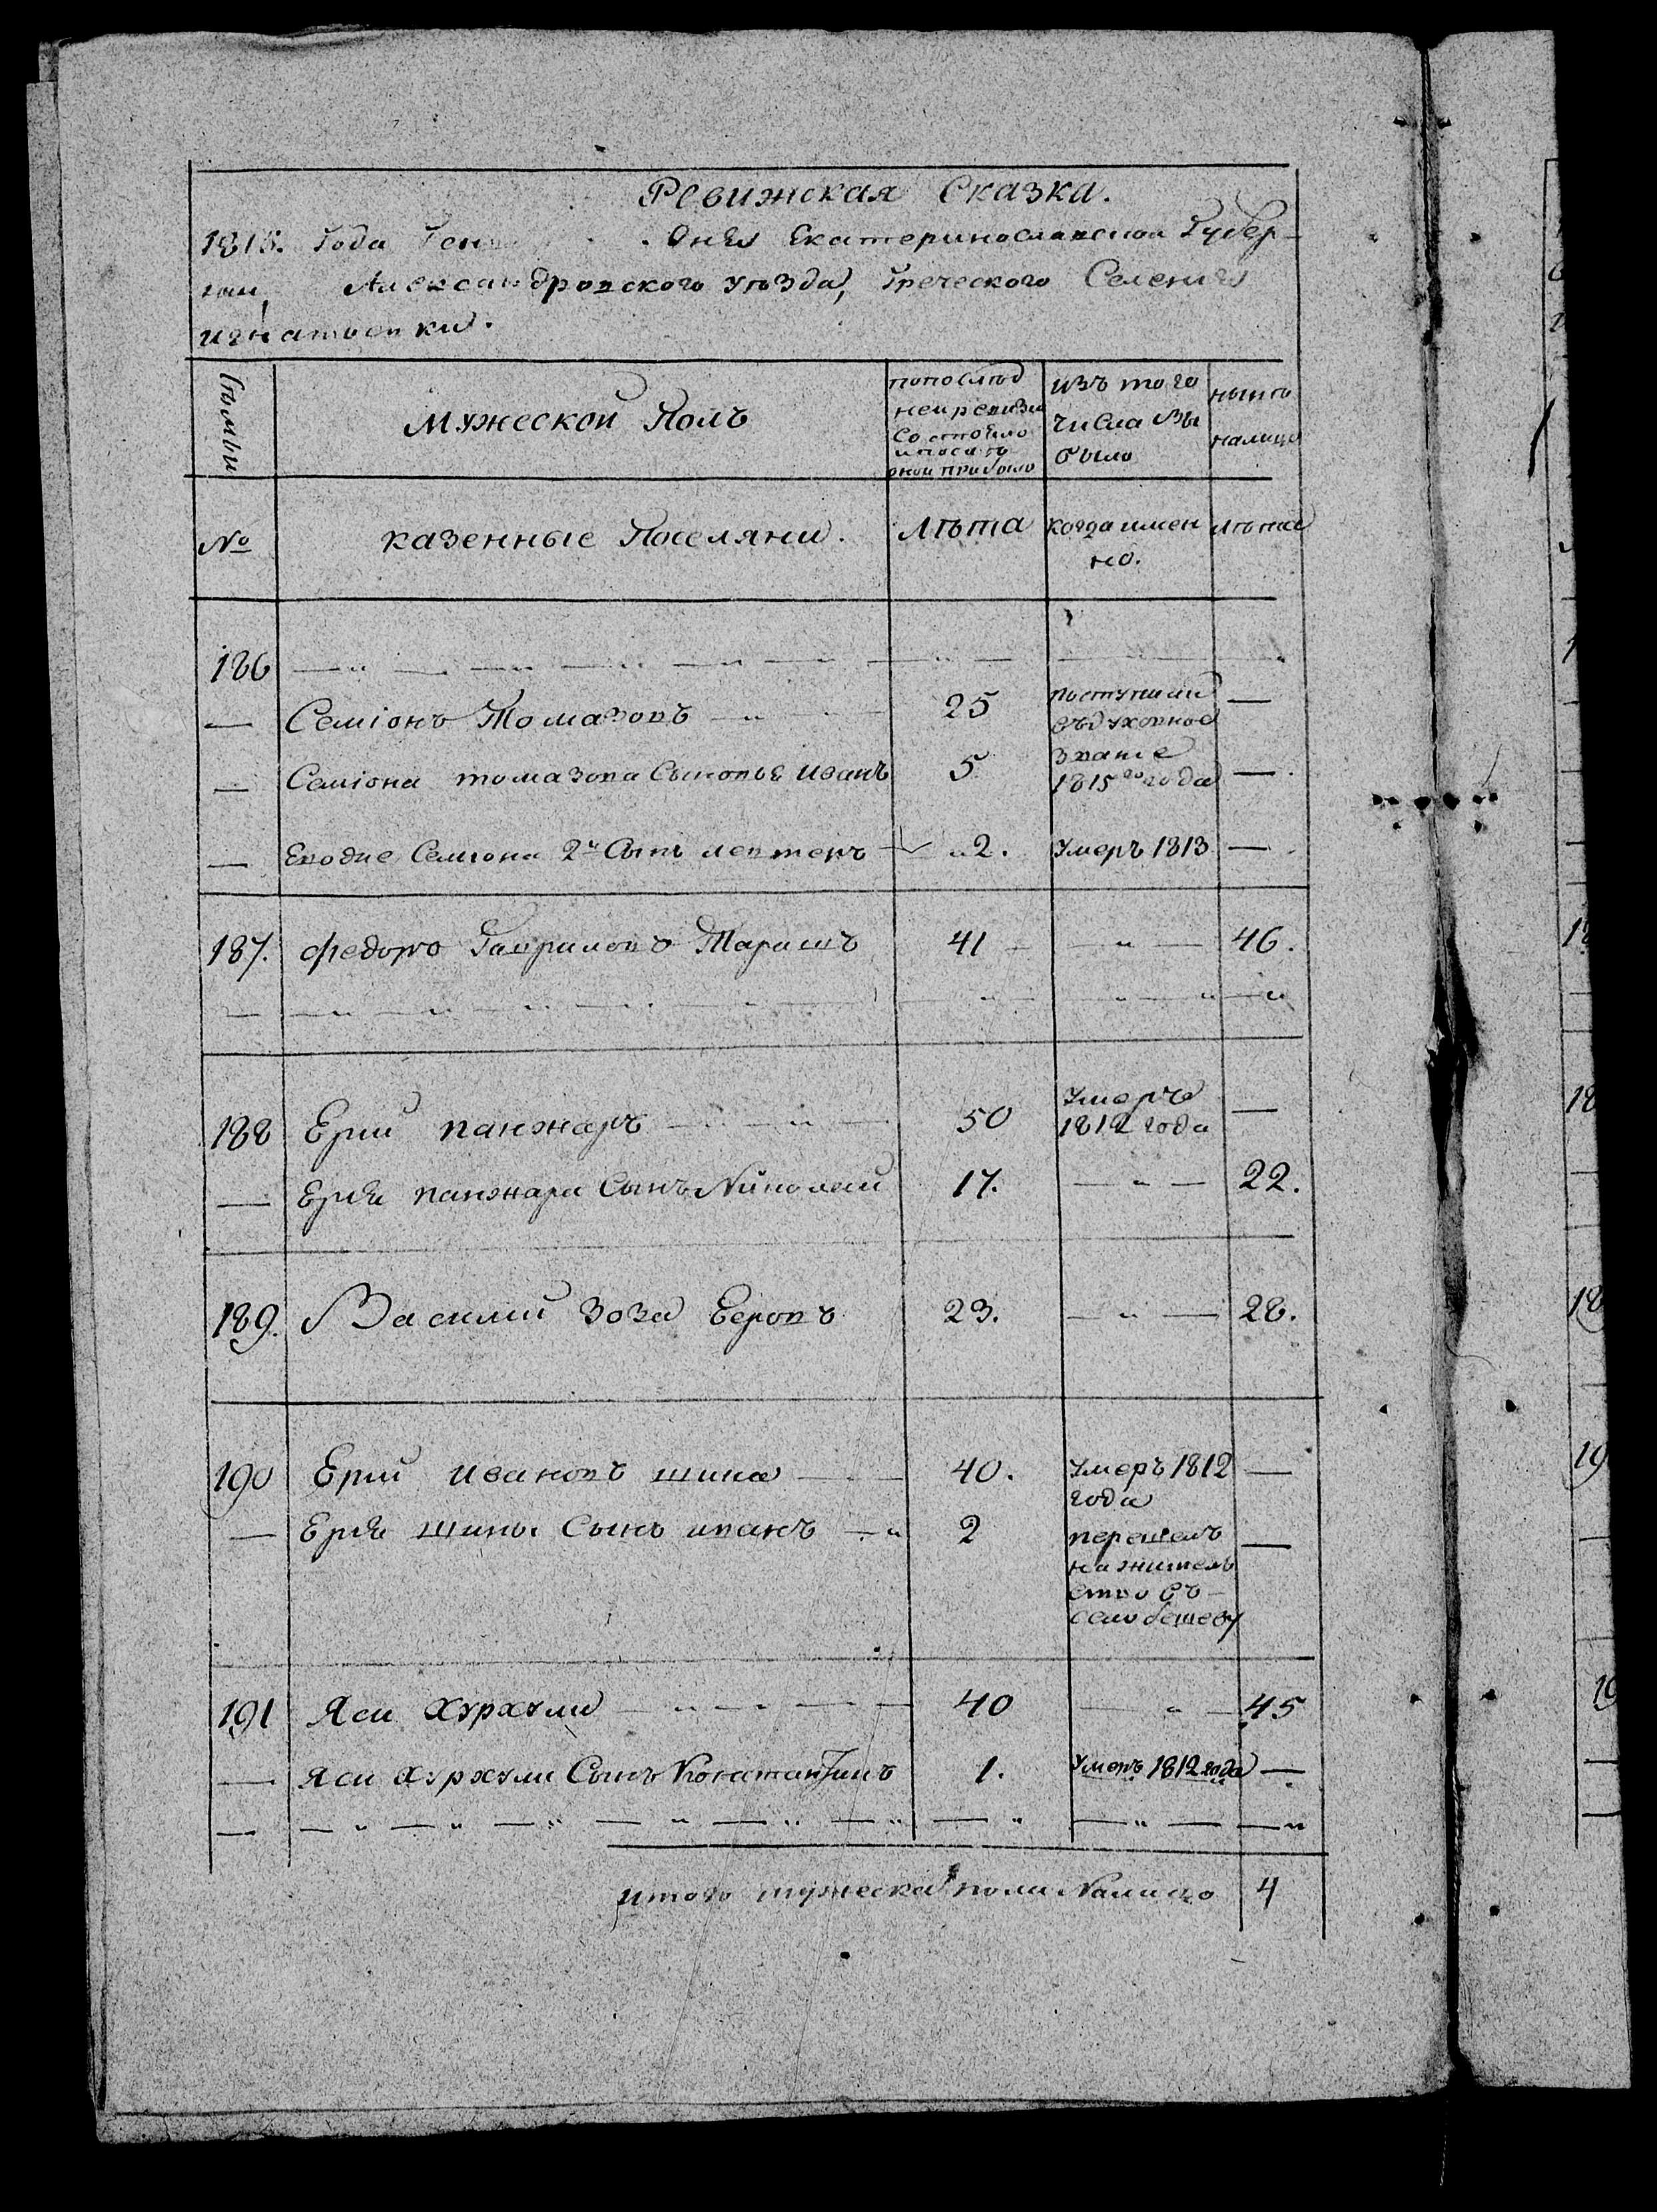 Ревижская Сказка.
1816. Года Ген Дня Екатеринославской Губер-
нии, Александровского уѣзда, Греческого Селения
игнатьевки.
Семьи
Мужеской Полъ
попослѣд
ней ревизи
Состояло
ипослѣ
оной прибыло
изъ того
числа Вы
было
нынѣ
налицо
№
казенные Поселяни.
Лѣта
когда имен
но.
лѣта
186
— Семіонъ Томазовъ 25 поступили —
въдуховное
— Семіона томазова Сыновья Иванъ 5 Звание —
1815го года
— Еводже Семіона 2й Сынъ левтеръ 2. Умеръ 1813 —
187. Федоръ Гавриловъ Тарашъ 41 — " — 46.
188 Ерий панжаръ 50 Умеръ —
1812 года
— Ерія панжара Сынъ Николай 17. — " — 22.
189. Василий Зоза Еровъ 23. — " — 28.
190 Ерий Ивановъ шина 40. Умеръ 1812 —
года
— Ерія шины Сынъ иванъ 2 перешелъ —
на житель
ство въ
село бешеву
191 Яси Хурхули 40 — " — 45
— Яси Хурхули Сынъ Константинъ 1. Умеръ 1812 года —
Итого мужеска пола Налицо 4